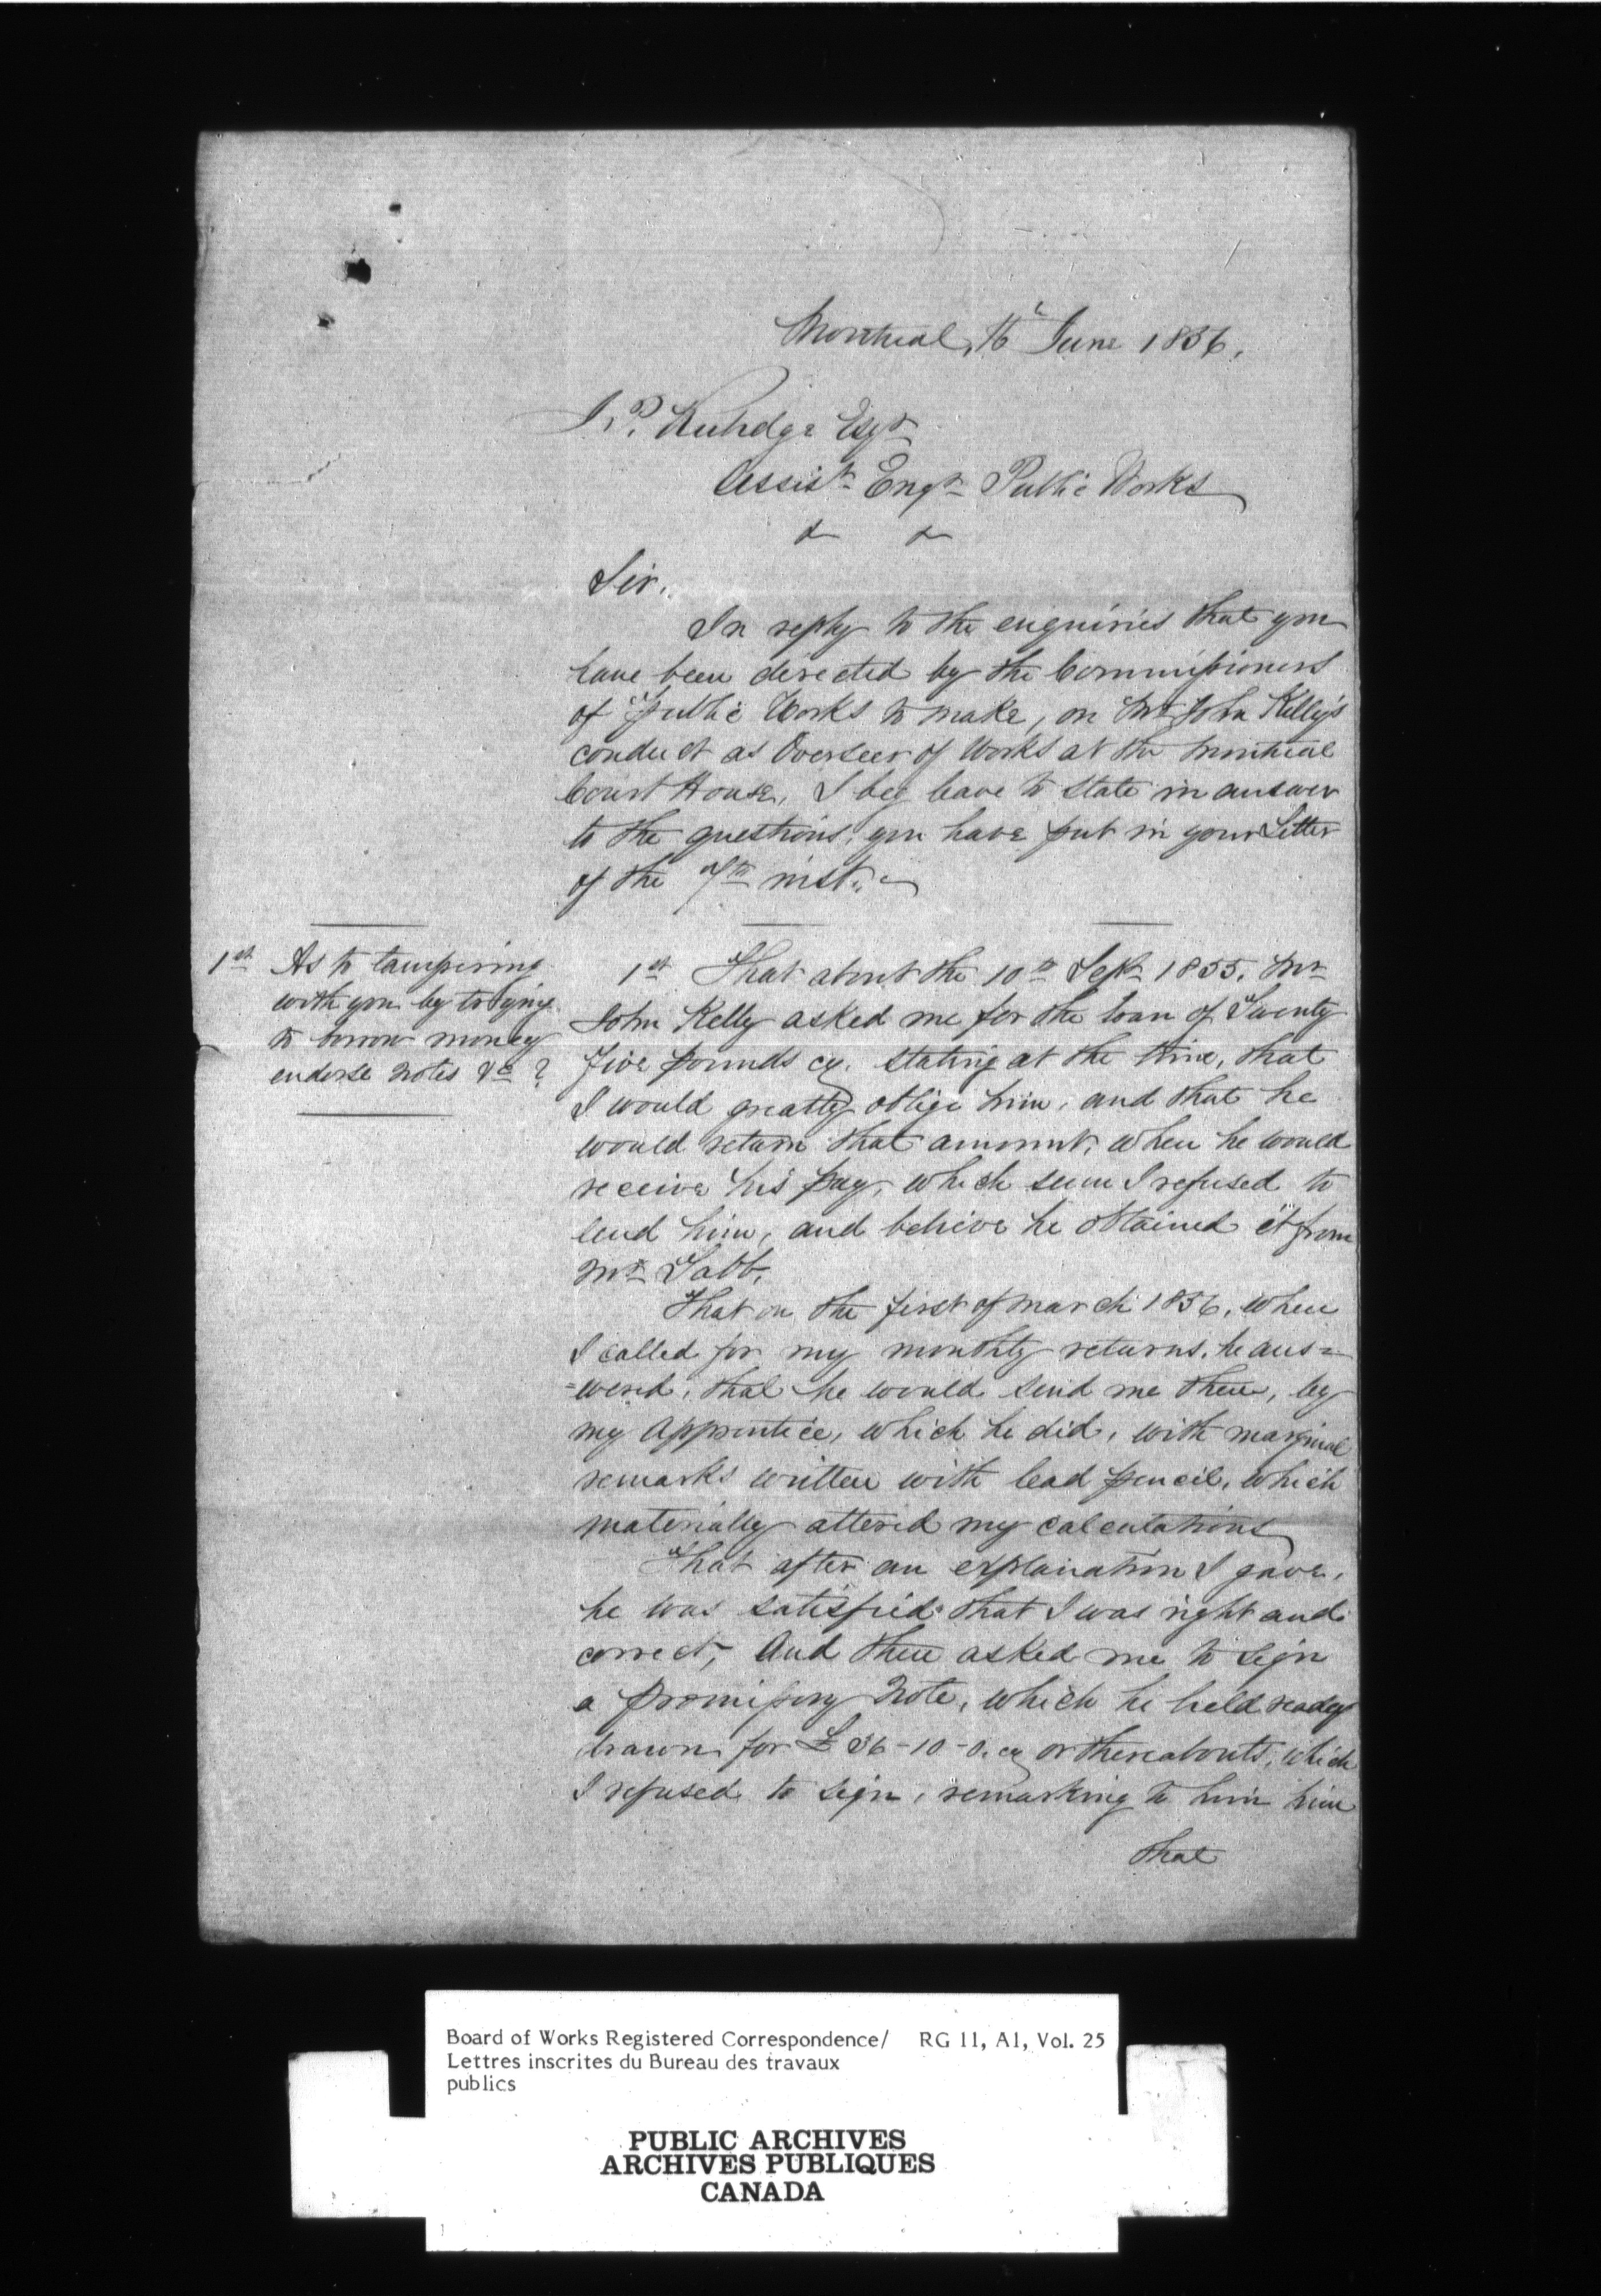 Montreal, 16 June 1856.
J. P. Rutledge Esqr
Assist Engr Public Works
& &
Sir,
In reply to the enquiries that you
have been directed by the Commissioners
of Public Works to make, on Mr John Kelly's
conduct as Overseer of Works at the Montreal
Court House, I beg leave to state in answer
to the questions, you have put in your Letter
of the 7th inst.
1st As to tampering
with you by trying
to borrow money
endorse notes &c ?
1st That about the 10th Sept 1855. Mr
John Kelly asked me for the loan of Twenty
five pounds cy. stating at the time, that
I would greatly oblige him, and that he
would return that amount, when he would
receive his pay, which sum I refused to
lend him, and believe he obtained it from
Mr
That on the first of March 1856, when
I called for my monthly returns, he ans=
=wered, that he would send me them, by
my Apprentice, which he did, with marginal
remarks written with lead pencil, which
materially altered my calculations
That after an explanation I gave,
he was satisfied that I was right and
correct, And then asked me to sign
a promissory Note, which he held ready
drawn for £ 36-10-0. cy or thereabouts, which
I refused to sign, remarking to him him
that
Board of Works Registered Correspondence/ RG 11, A1, Vol. 25
Lettres inscrites du Bureau des travaux
publics
PUBLIC ARCHIVES
ARCHIVES PUBLIQUES
CANADA